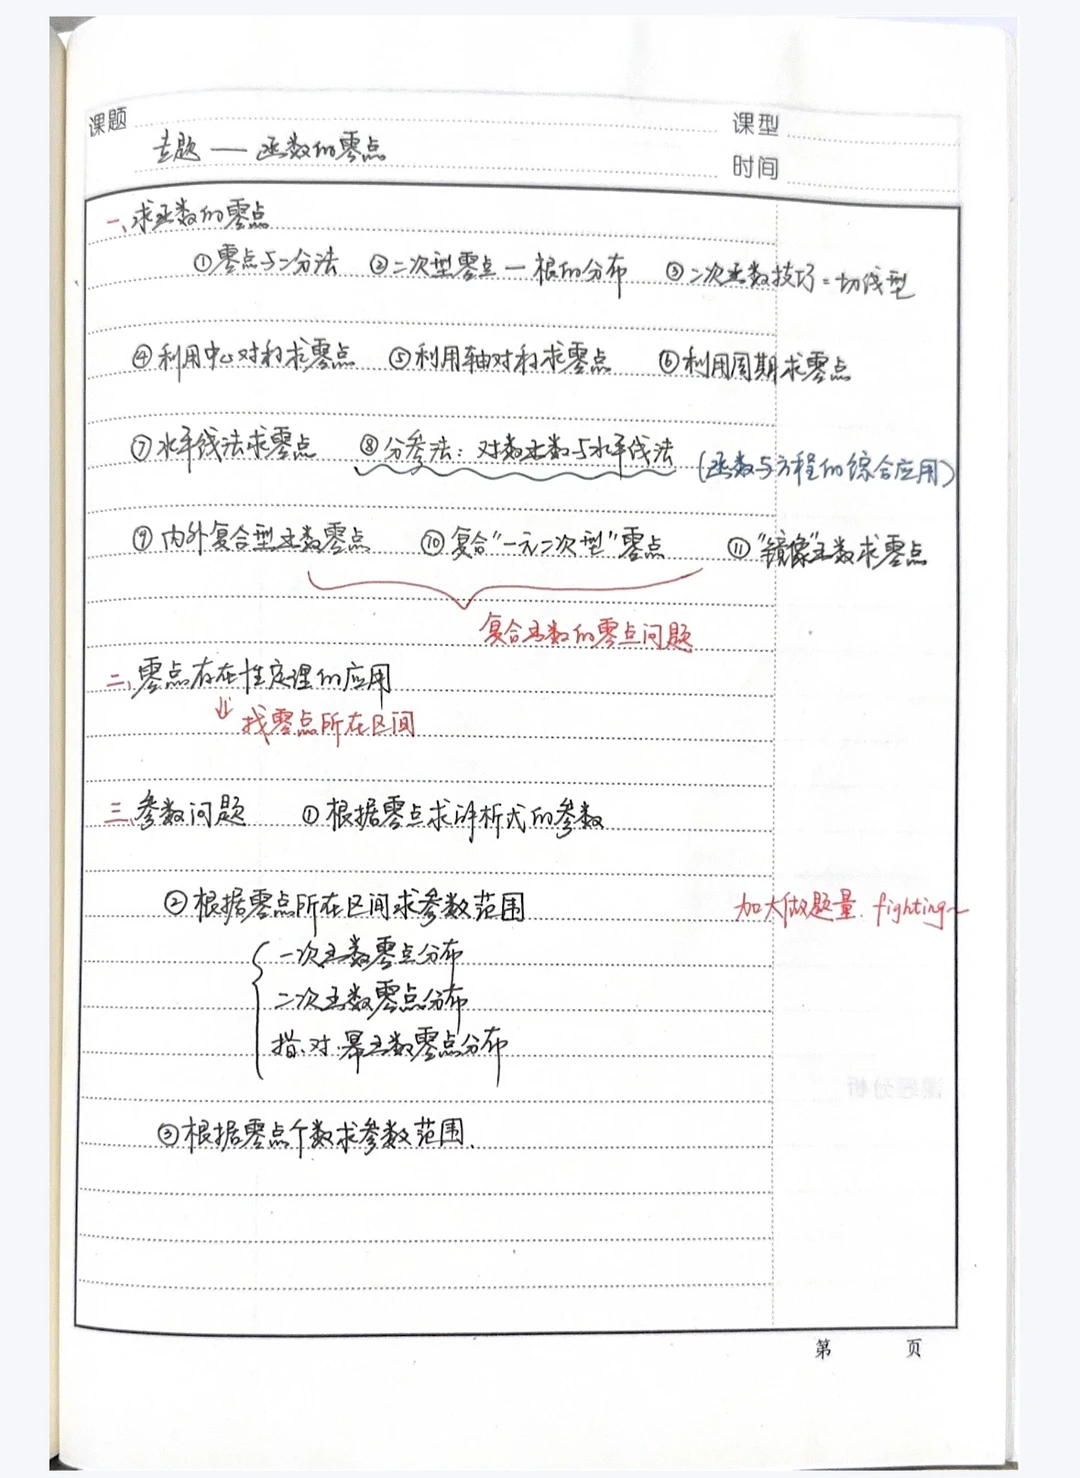 课题
课型
专题——函数的零点
时间
一、求函数的零点
①零点与二分法 ②二次型零点—根的分布 ③二次函数技巧:切线型
④利用中心对称求零点 ⑤利用轴对称求零点 ⑥利用周期求零点
⑦水平线法求零点 ⑧分参法:对数函数与水平线法 (函数与方程的综合应用)
⑨内外复合型函数零点 ⑩复合“一元二次型”零点 ⑪“镜像”函数求零点
复合函数的零点问题
二、零点存在性定理的应用
⇓ 找零点所在区间
三、参数问题 ①根据零点求解析式的参数
②根据零点所在区间求参数范围 加大做题量. fighting~
一次函数零点分布
二次函数零点分布
指.对.幂函数零点分布
③根据零点个数求参数范围.
第 页